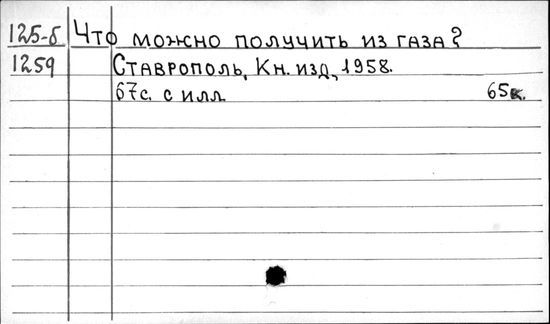 125-б Что можно получить из газа?
1259 Ставрополь, Кн. изд, 1958.
67с. с илл. 65к.